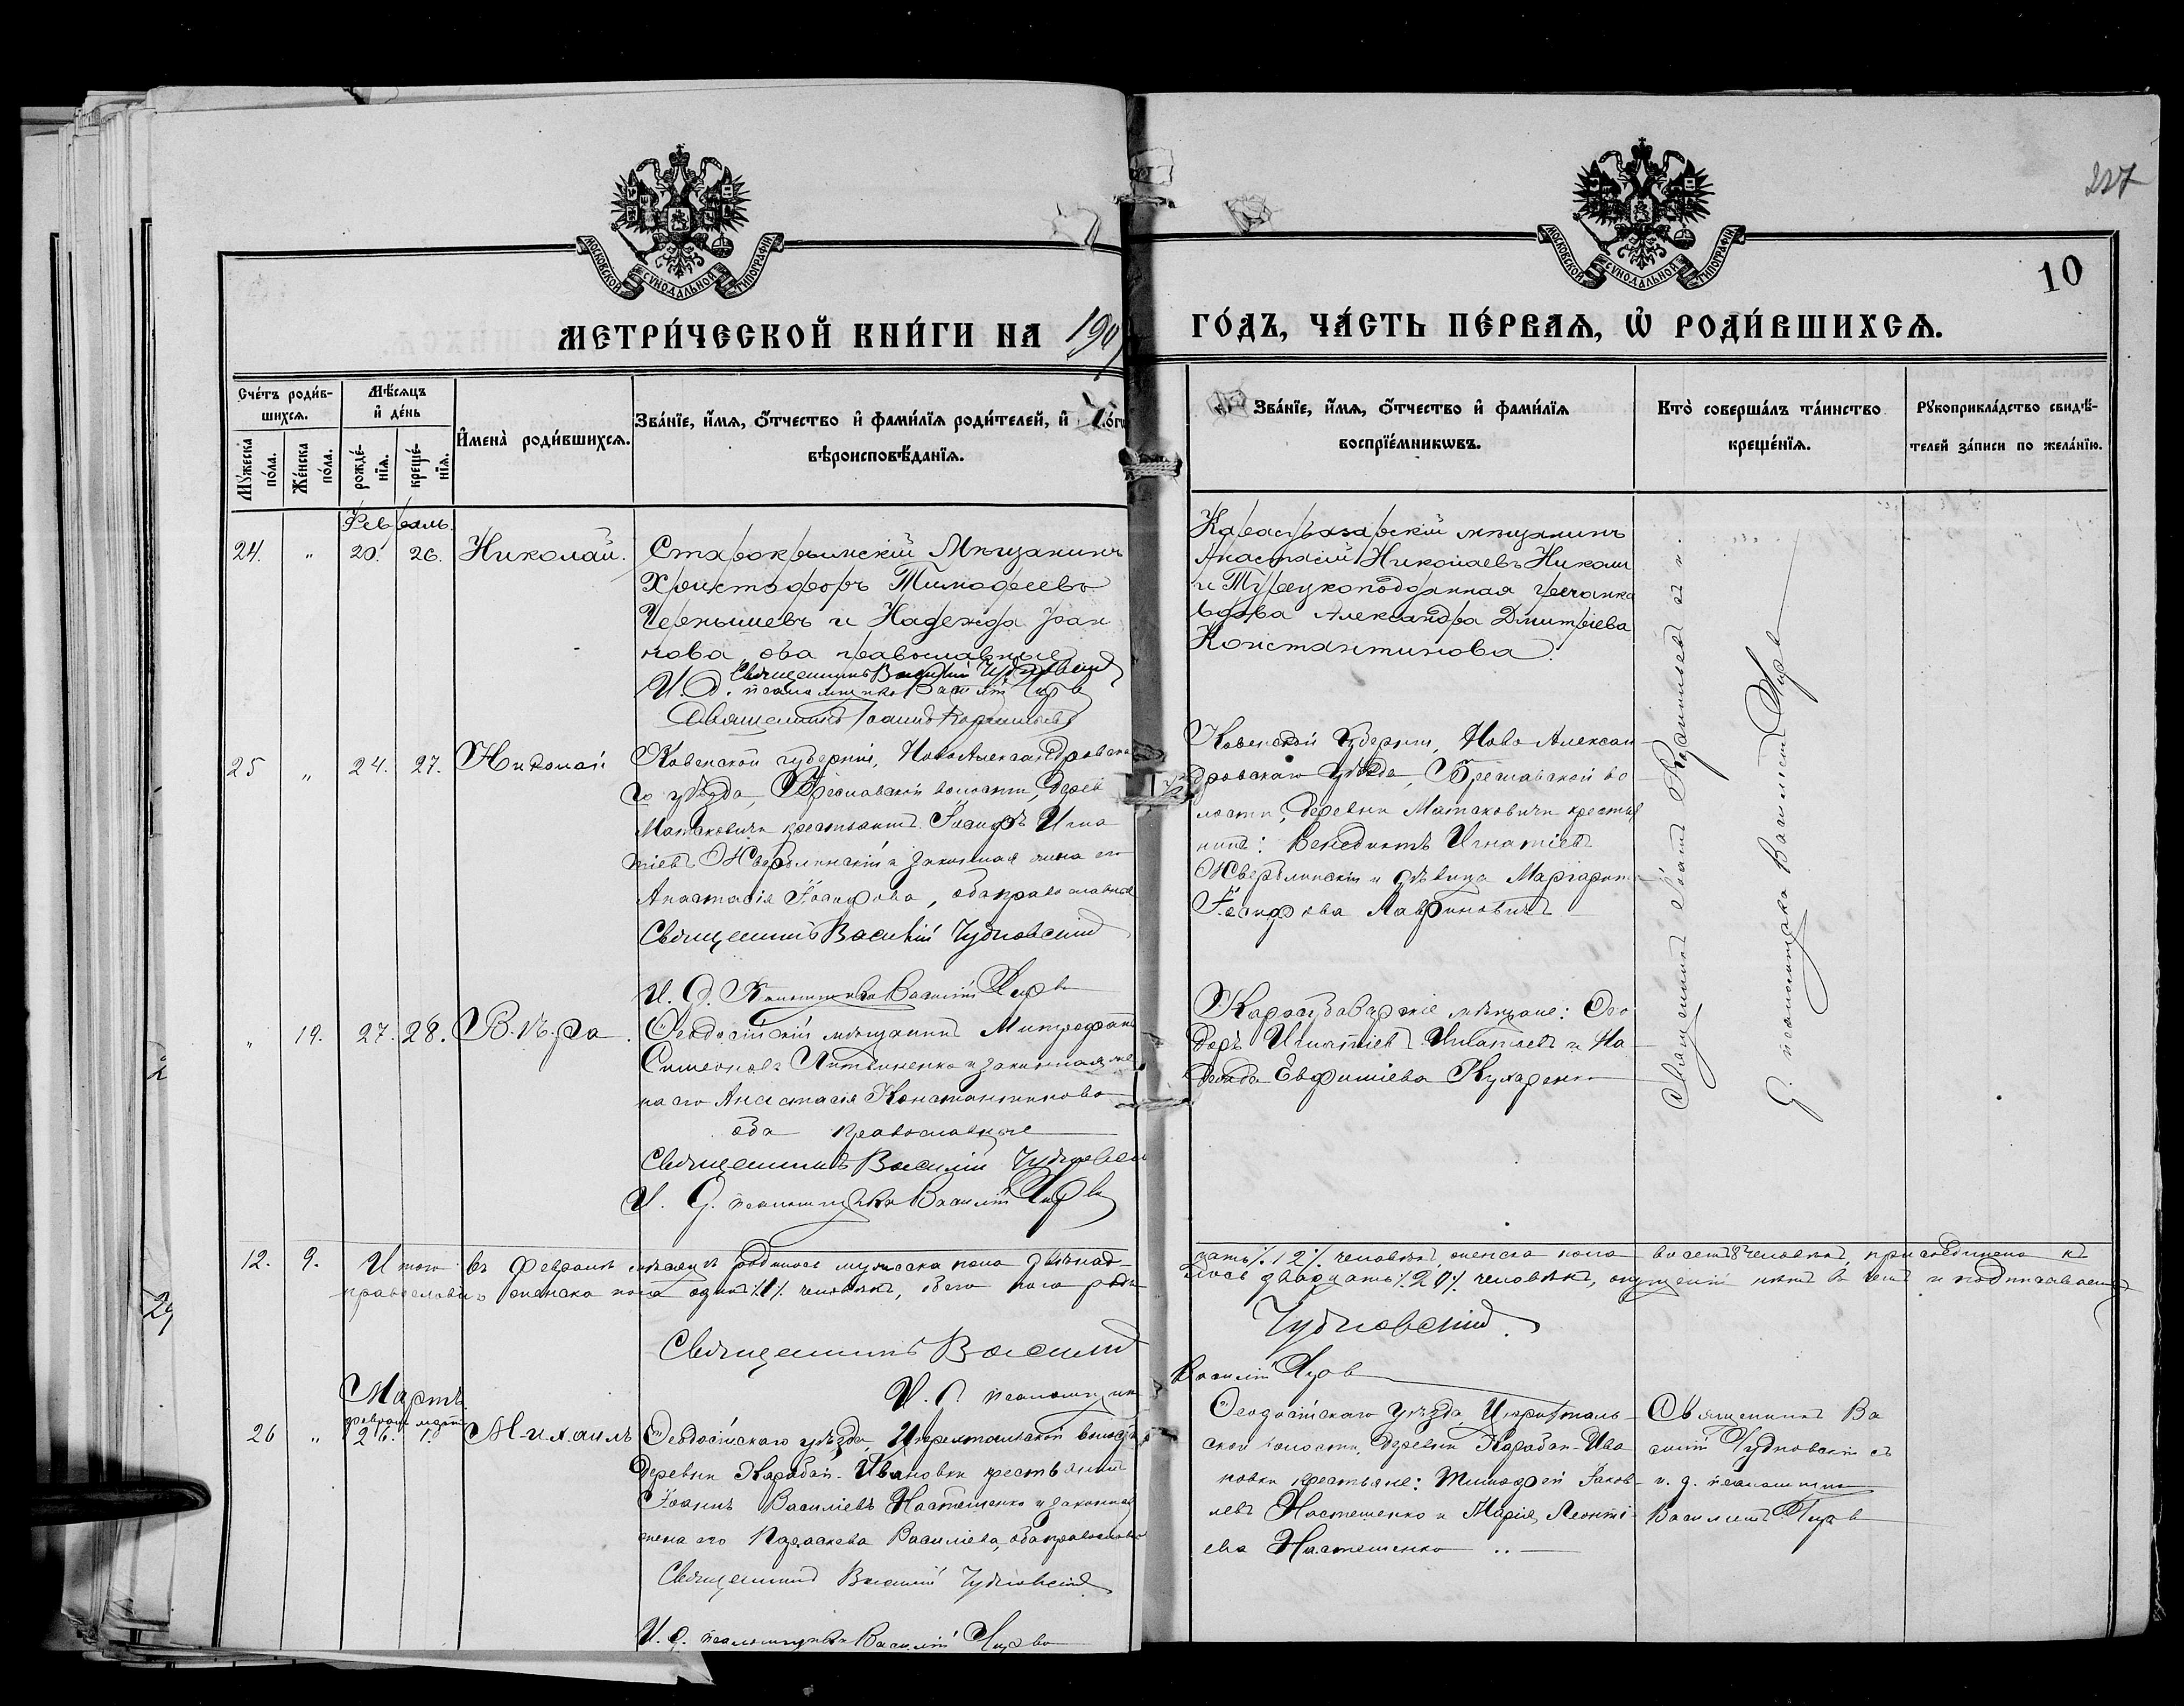 227
10
МОСКОВСКОЙ СѴНОДАЛЬНОЙ ТИПОГРАФІИ
МОСКОВСКОЙ СѴНОДАЛЬНОЙ ТИПОГРАФІИ
МЕТРИ́ЧЕСКОЙ КНИ́ГИ НА 190
ГО́ДЪ, ЧА́СТЬ ПЕ́РВАЯ, Ѡ҆ РОДИ́ВШИХСЯ.
Сче́тъ роди́в-
шихся.
Му́жеска
по́ла.
Же́нска
по́ла.
Мѣ́сяцъ
и҆ де́нь
рожде́-
нїя.
креще́-
нїя.
И҆мена̀ роди́вшихся.
Зва́нїе, и҆́мя, о҆́тчество и҆ фами́лїя роди́телей, и҆
вѣроисповѣ́данїя.
Зва́нїе, и҆́мя, о҆́тчество и҆ фами́лїя
воспрїе́мникѡвъ.
Кто̀ соверша́лъ та́инство
креще́нїя.
Рꙋкоприкла́дство свидѣ́-
телей за́писи по жела́нїю.
Февраль.
24. " 20. 26. Николай.
Старокрымскій Мѣщанинъ
Христофоръ Тимофеевъ
Чернышевъ и Надежда Іоан
нова оба православные
Священникъ Василій Чудновскій
И. д. псаломщика Василій
Священникъ Іоаннъ
Карасубазарскій мѣщанинъ
Анастасій Николаевъ
и Турецкоподданная гречанка
вдова Александра Дмитріева
Константинова.
25 " 24. 27. Николай
Ковенской губерніи, Ново Александровска
го уѣзда, Бреславской волости, дерев
Матаковичи крестьянинъ Іосифъ Игна
тіевъ и законная жена его
Анастасія Іосифова, оба православные
Священникъ Василій Чудновскій
И. д. псаломщика Василій
Ковенской губерніи, Ново Алексан
дровскаго уѣзда, Бреславской во
лости, деревни Матаковичи крестья
нинъ: Венедиктъ Игнатіевъ
и дѣвица Маргарита
Іосифова Лавриновичъ
" 19. 27. 28. Вѣра.
Ѳеодосійскій мѣщанинъ Митрофанъ
Симеоновъ Литвиненко и законная же
на его Анастасія Константинова
оба православные
Священникъ Василій Чудновскій
И. д. псаломщика Василій
Карасубазарскіе мѣщане: Ѳео
доръ Игнатіевъ Игнатьевъ и На
дежда Евфиміева Кухаренко
Священникъ Іоаннъ
псаломщика Василій
12. 9. Итого въ февралѣ мѣсяцѣ родилось мужеска пола двѣнад-
цать /12/ человѣкъ, женска пола восемь 8 человѣкъ, присоединено къ
православію женска пола одинъ /1/ человѣкъ, обего пола роди
лось двадцать /20/ человѣкъ, опущеній нѣтъ въ чемъ и подписываемся
Священникъ Василій
Чудновскій.
И. д. псаломщика
Василій
Мартъ.
февраль мартъ
26 " 26. 1. Михаилъ
Ѳеодосійскаго уѣзда, Цюрихтальской волости
деревни Карабай-Ивановки крестьянинъ
Іоаннъ Василіевъ Настешенко и законная
жена его Параскева Василіева, оба православные
Священникъ Василій Чудновскій
И. д. псаломщика Василій
Ѳеодосійскаго уѣзда, Цюрихталь-
ской волости, деревни Карабай-Ива
новки крестьяне: Тимофей Іаков-
левъ Настешенко и Марія Леонті-
ева Настешенко
Священникъ Ва
силій Чудновскій съ
и. д. псаломщика
Василіемъ